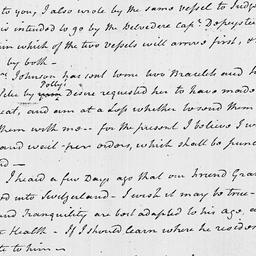 to you, I also wrote by the same vessel to Judge
is intended to go by the Belvedere Capt. Depeyster
in which of the two vessels will arrive first, &
by both -
Johnson has sent some two Bracelets and
Polly's
by your Desire requested her to have made
eat, and am at a Loss whether to send them
them with me - for the present I believe I w
and wait your orders, which shall be punc
d -
I heard a few Days ago that our Friend Gra
ed into Switzerland - I wish it may be true -
and Tranquility are best adapted to his age, a
t Health - If I should learn where he reside
te to him -